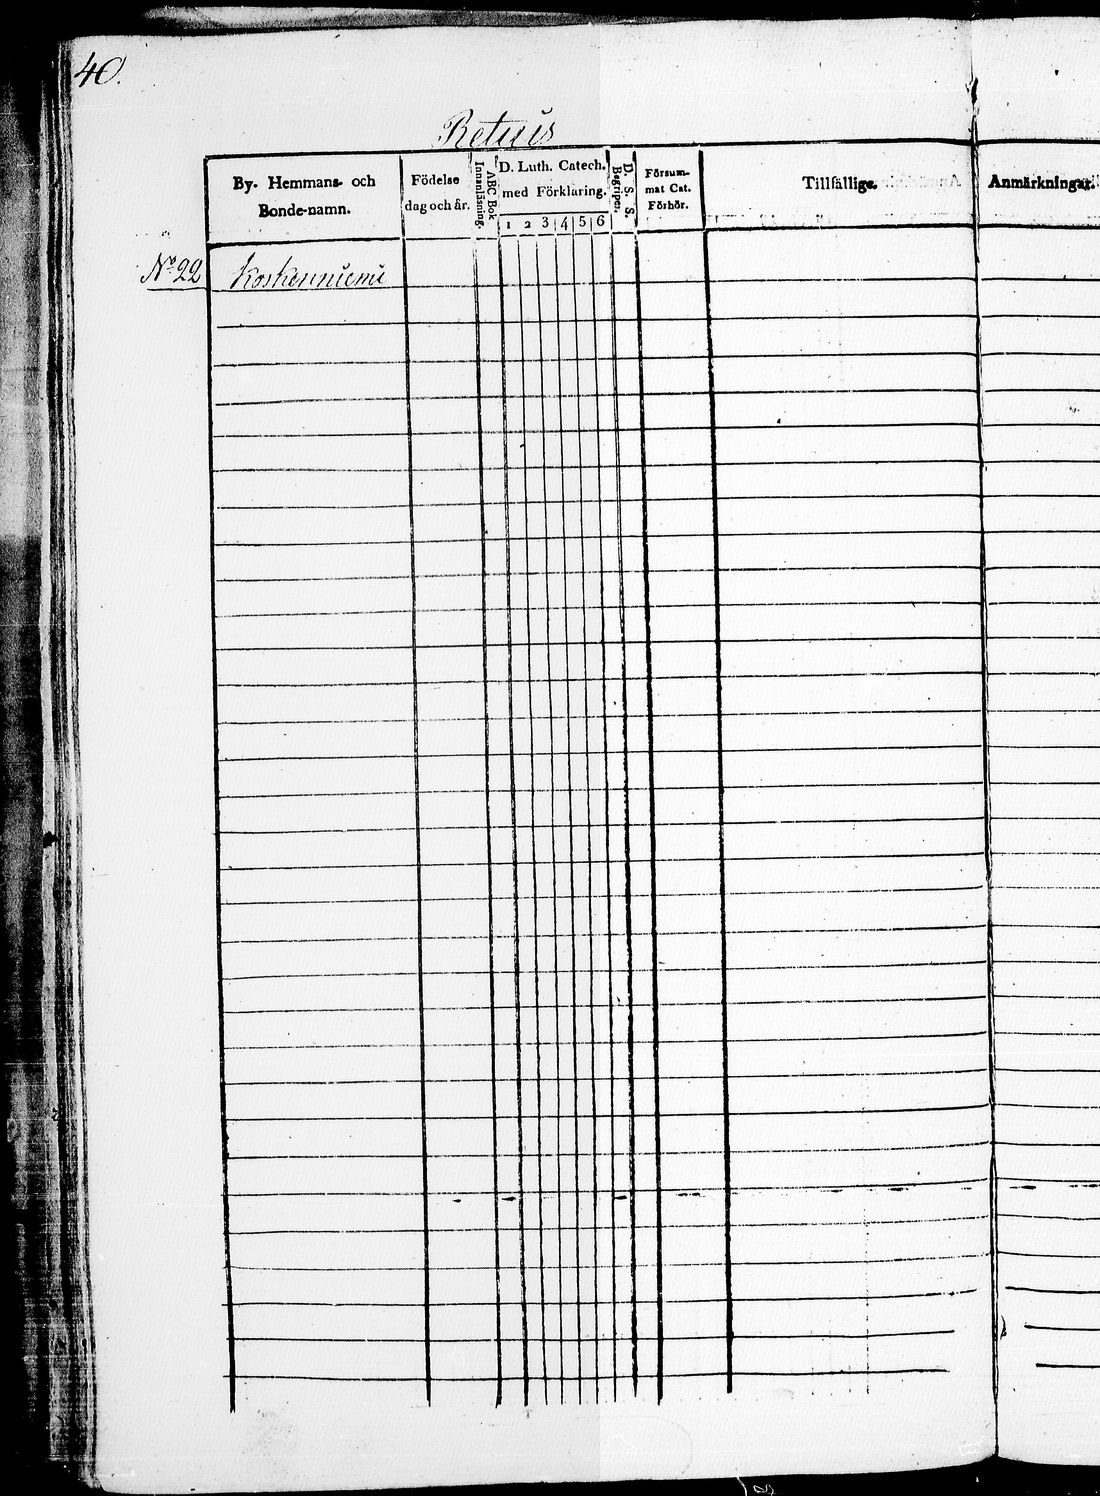 40.
Retuis
By- Hemmans- och
Bonde-namn.
Födelse
dag och år.
ABC Bok
Innanläsning.
D. Luth. Catech.
med Förklaring.
1 2 3 4 5 6
D. S. S.
Begripen.
Försum-
mat Cat.
Förhör.
Tillfällige
Anmärkningar.
No 22 Koskenniemi